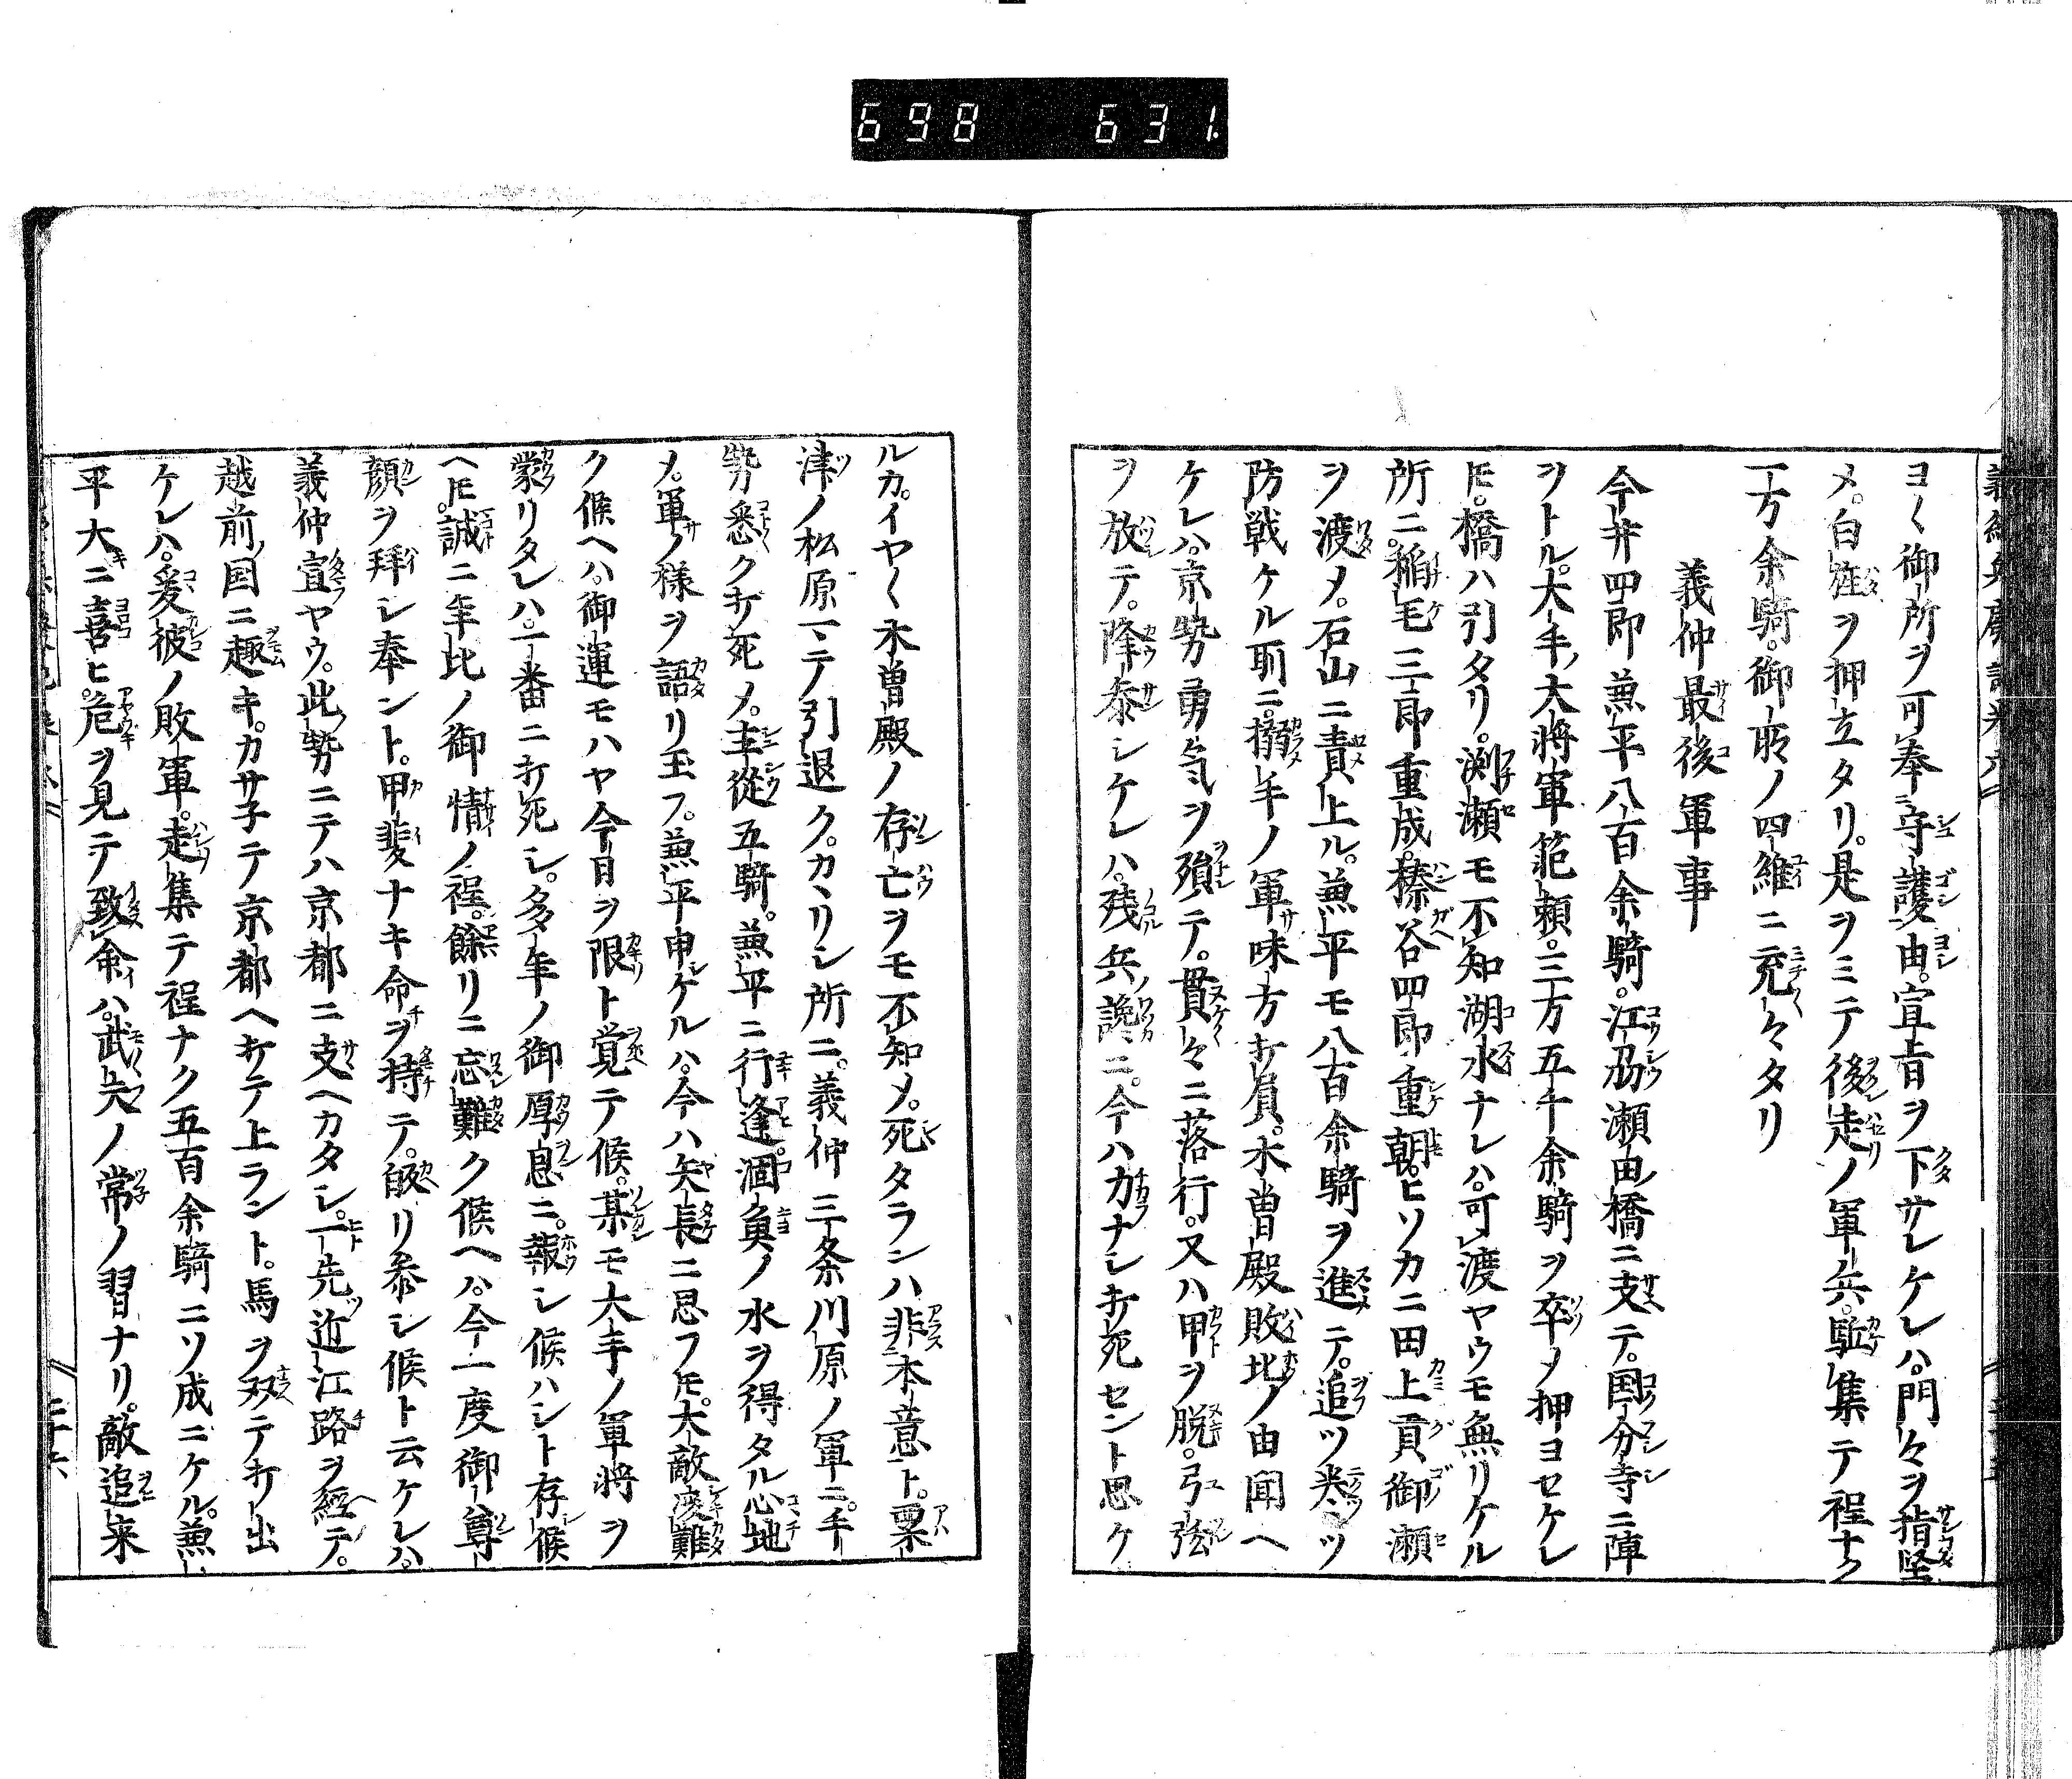 698 631
ヨク御所ヲ可奉守護由。宣旨ヲ下サレケレハ。門々ヲ指堅
メ。白旌ヲ押立タリ。是ヲミテ後走ノ軍兵。駈集テ程ナク
一万余騎。御所ノ四維ニ充々タリ
義仲最後軍事
今井四郎兼平八百余騎。江刕瀬田橋ニ支テ。国分寺ニ陣
ヲトル。大手ノ大将軍範頼。三万五千余騎ヲ卒メ押ヨセケレ
𪜈。橋ハ引タリ。渕瀬モ不知湖水ナレハ。可渡ヤウモ無リケル
所ニ。稲毛三郎重成。榛谷四郎重朝。ヒソカニ田上貢御瀬
ヲ渡メ。石山ニ責上ル。兼平モ八百余騎ヲ進テ。追ツ巻ツ
防戦ケル所ニ。搦手ノ軍味方打負。木曽殿敗北ノ由聞ヘ
ケレハ。京勢勇気ヲ殞テ。貫々ニ落行。又ハ甲ヲ脱。弓弦
ヲ放テ。降参シケレハ。残兵纔ニ。今ハ力ナシ打死セント思ケ
ルカ。イヤ〱木曽殿ノ存亡ヲモ不知メ。死タランハ非本意ト。粟
津ノ松原マテ引退ク。カヽリシ所ニ。義仲三条川原ノ軍ニ。手
勢悉ク打死メ。主従五騎。兼平ニ行逢。涸魚ノ水ヲ得タル心地
メ。軍ノ様ヲ語リ玉フ。兼平申ケルハ。今ハ矢長ニ思フ𪜈。大敵凌難
ク候ヘハ。御運モハヤ今日ヲ限ト覚テ候。某モ大手ノ軍将ヲ
蒙リタレハ。一番ニ打死シ。多年ノ御厚恩ニ。報シ候ハント存候
ヘ𪜈。誠ニ年比ノ御情ノ程。餘リニ忘難ク候ヘハ。今一度御尊
顔ヲ拝シ奉ント。甲斐ナキ命ヲ持テ。皈リ参シ候ト云ケレハ。
義仲宣ヤウ。此勢ニテハ京都ニ支ヘカタシ。一先近江路ヲ經テ。
越前ノ国ニ趣キ。カサ子テ京都ヘ打テ上ラント。馬ヲ双テ打出
ケレハ。爰彼ノ敗軍。走集テ程ナク五百余騎ニソ成ニケル。兼
平大ニ喜ヒ。危ヲ見テ致命ハ。武夫ノ常ノ習ナリ。敵追来